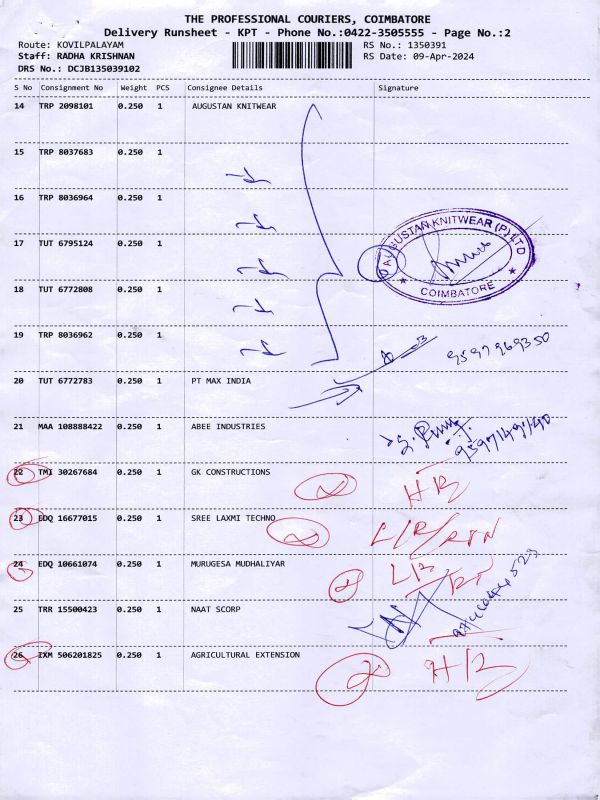 THE PROFESSIONAL COURIERS, COIMBATORE
Delivery Runsheet - KPT - Phone No.:0422-3505555 - Page No.:2
Route: KOVILPALAYAM RS No.: 1350391
Staff: RADHA KRISHNAN RS Date: 09-Apr-2024
DRS No.: DCJB135039102
S No Consignment No Weight PCS Consignee Details Signature
14 TRP 2098101 0.250 1 AUGUSTAN KNITWEAR
15 TRP 8037683 0.250 1
16 TRP 8036964 0.250 1
17 TUT 6795124 0.250 1
AUGUSTAN KNITWEAR (P) LTD
COIMBATORE
18 TUT 6772808 0.250 1
19 TRP 8036962 0.250 1
9597969350
20 TUT 6772783 0.250 1 PT MAX INDIA
21 MAA 108888422 0.250 1 ABEE INDUSTRIES
22 TMI 30267684 0.250 1 GK CONSTRUCTIONS
23 EDQ 16677015 0.250 1 SREE LAXMI TECHNO
24 EDQ 10661074 0.250 1 MURUGESA MUDHALIYAR
25 TRR 15500423 0.250 1 NAAT SCORP
26 IXM 506201825 0.250 1 AGRICULTURAL EXTENSION